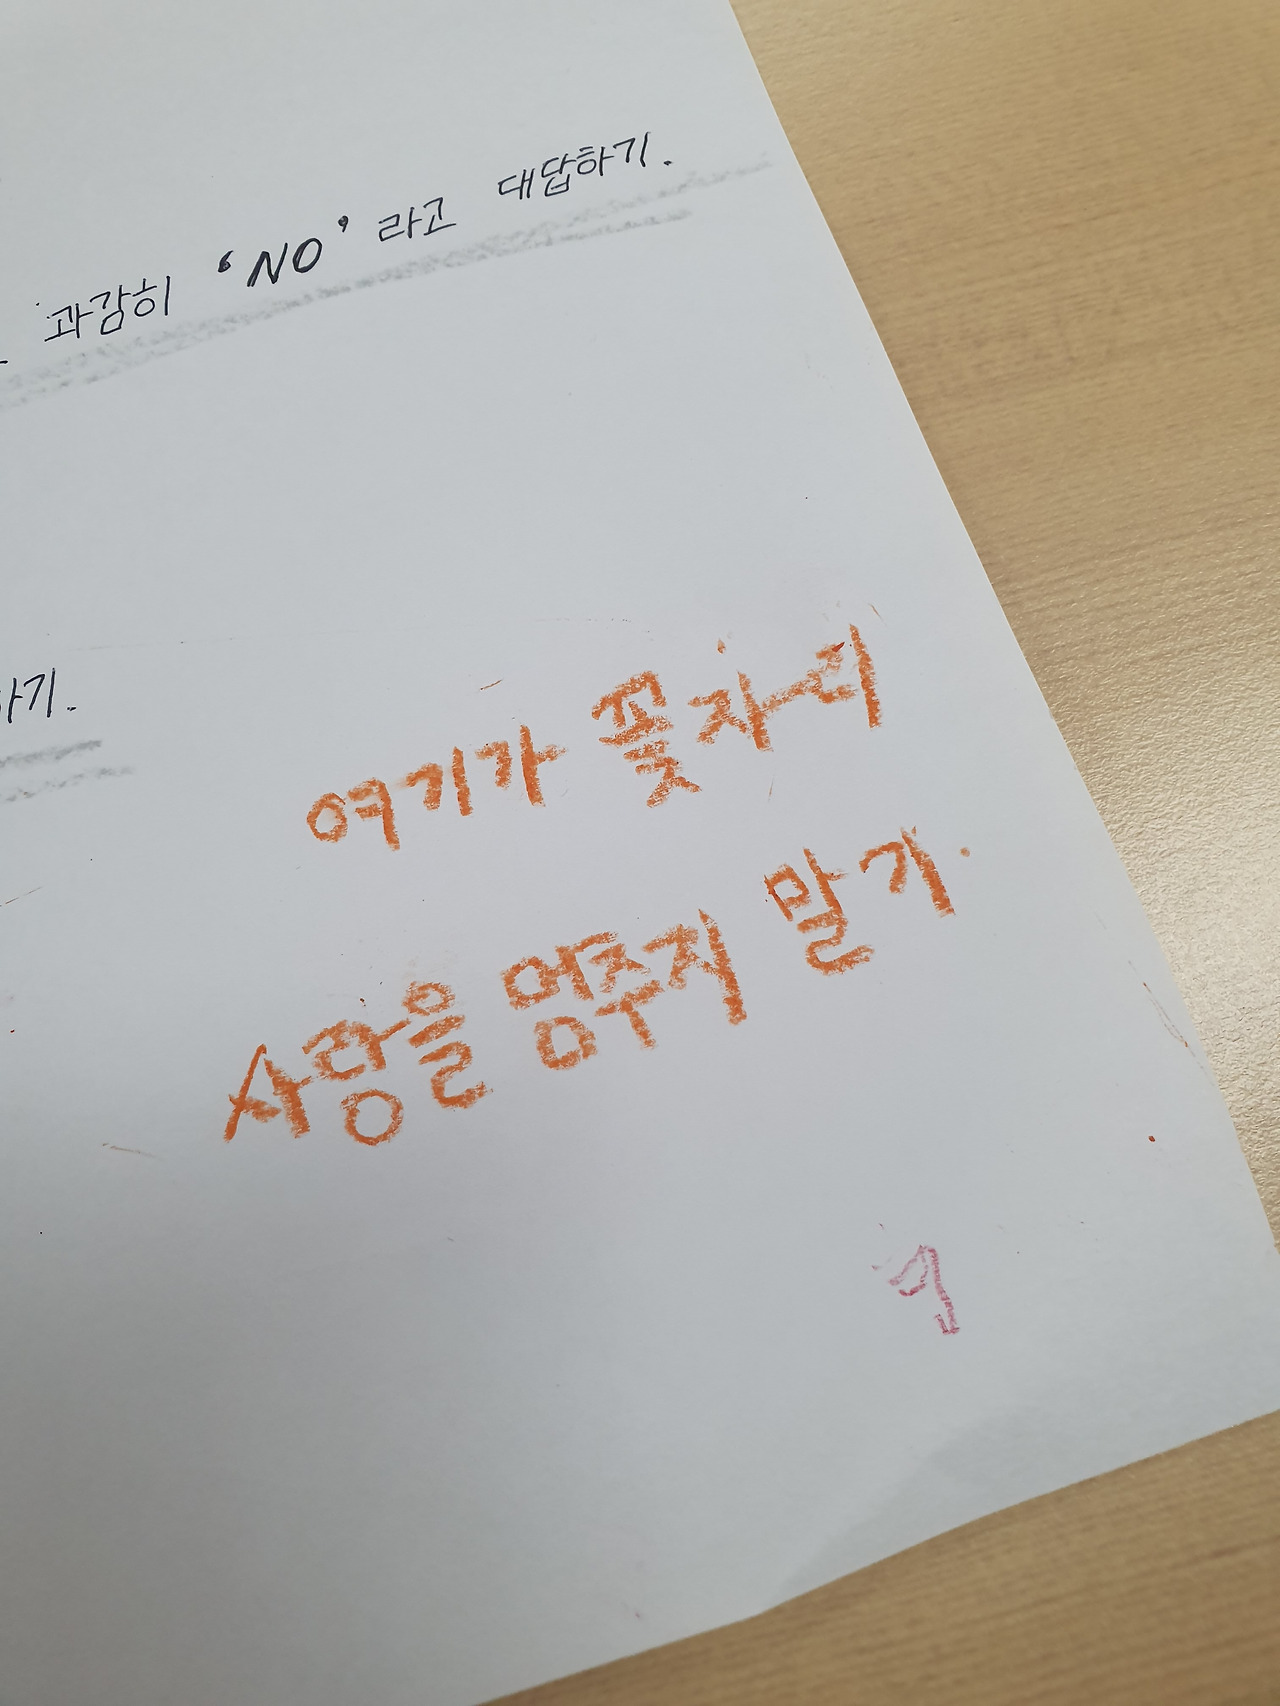 과감히 'NO' 라고 대답하기.
하기.
여기가 꽃자리
사랑을 멈추지 말기.